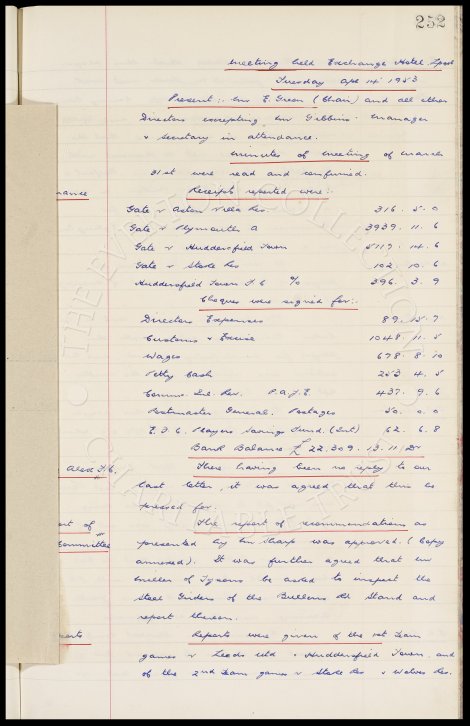 252
Meeting held Exchange Hotel L'pool
Tuesday Apl 14th 1953
Present:- Mr E. Green (Chair) and all other
Directors excepting Mr Gibbins. Manager
& Secretary in attendance.
Minutes of meeting of March
31st were read and confirmed.
nance
Receipts reported were:-
Gate v Aston Villa Res. 316. 5. 0
Gate v Plymouth A 3939. 11. 6
Gate v Huddersfield Town 5117. 14. 6
Gate v Stoke Res 102. 10. 6
Huddersfield Town F.C. % 396. 3. 9
Cheques were signed for:-
Directors Expenses 89. 15. 7
Customs & Excise 1048. 11. 5
Wages 678. 8. 10
Petty Cash 253. 4. 5
Commrs. Inl. Rev. P.A.Y.E. 437. 9. 6
Postmaster General. Postages 50. 0. 0
E.F.C. Players Savings Fund. (Int) 62. 6. 8
Bank Balance £22,309. 13. 11 Dr
F.C.
There having been no reply to our
last letter, it was agreed that this be
pressed for.
ort of
The report of recommendations as
Committee
presented by Mr Sharp was approved. (Copy
annexed). It was further agreed that Mr
of Tysons be asked to inspect the
Steel Girders of the Bullens Rd Stand and
report thereon.
Reports were given of the 1st Team
games v Leeds Utd & Huddersfield Town and
of the 2nd Team games v Stoke Res & Wolves Res.
THE EVERTON COLLECTION
CHARITABLE TRUST